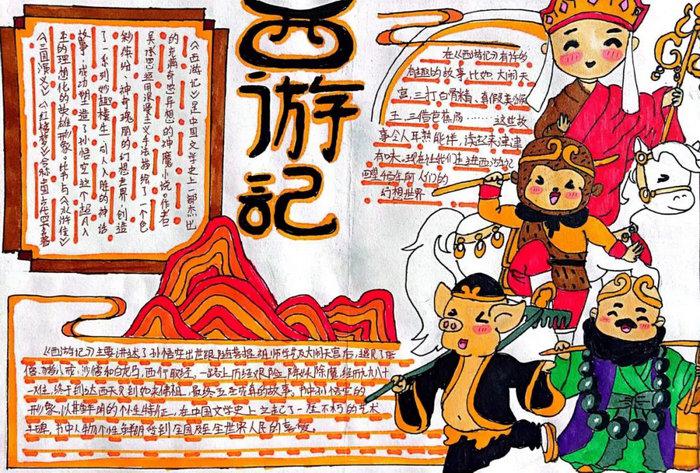 西游記
《西游记》是中国文学史上一部杰出
的充满奇思异想的神魔小说。作者
吴承恩运用浪漫主义手法描绘了一个色
彩缤纷、神奇瑰丽的幻想世界，创造
了一系列妙趣横生、引人入胜的神话
故事，成功塑造了孙悟空这个超凡入
圣的理想化的英雄形象。此书与《水浒传》
《三国演义》《红楼梦》合称中国古代四大名著
在《西游记》有许多
有趣的故事，比如大闹天
宫，三打白骨精，真假美猴
王，三借芭蕉扇……这些故
事令人耳熟能详，读起来津津
有味，现在让我们走进西游记
人们的
幻想世界
《西游记》主要讲述了孙悟空出世跟随菩提祖师学艺及大闹天宫后，遇见了唐
僧、猪八戒、沙悟和白龙马，西行取经，一路上历经艰险，降妖除魔，经历九九八十
一难，终于到达西天见到如来佛祖，最终五圣成真的故事。书中孙悟空的
形象，以其鲜明的个性特征，在中国文学史上立起了一座不朽的艺术
丰碑，书中人物个性鲜明得到全国及至全世界人民的喜爱。